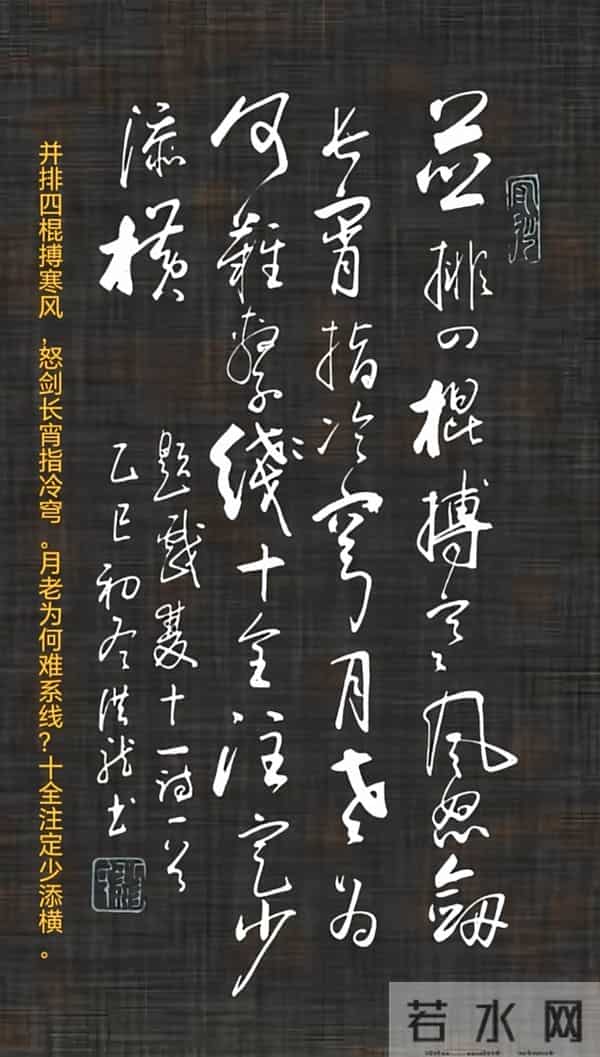 並排四棍搏寒风怒劔
长宵指冷穹月老为
何難繫綫十全注定少
添横
题戏双十一诗一首
乙巳初冬洪龙书
并排四棍搏寒风,怒剑长宵指冷穹。月老为何难系线?十全注定少添横。
若水网